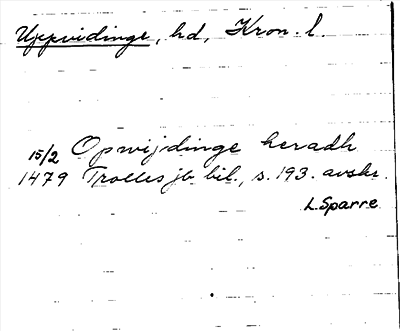 Uppvidinge, hd, Kron. l.
15/2 Opwijdinge heradh
1479 Trolles jb bil., s. 193. avskr.
L. Sparre